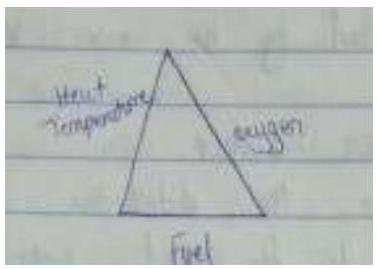 Heat
Temperature
oxygen
Fuel